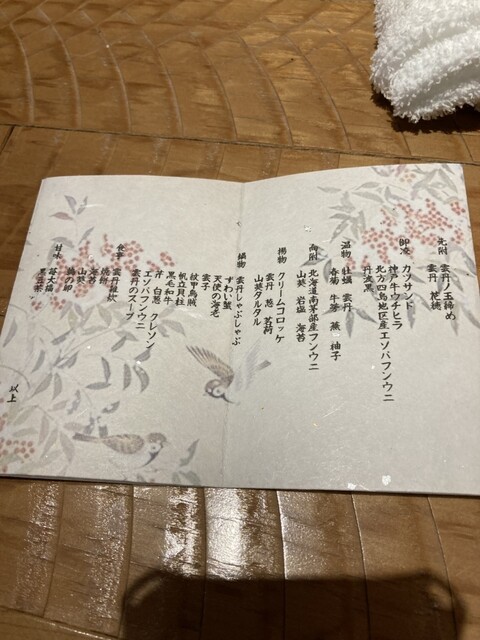 先附
雲丹ノ玉締め
雲丹 花穂
御凌
カツサンド
神戸牛ウチヒラ
北方四島地区産エゾバフンウニ
丹波黒
温物
牡蠣 雲丹
春菊 牛蒡 蕪 柚子
向附
北海道南茅部産フンウニ
山葵 岩塩 海苔
揚物
クリームコロッケ
雲丹 葱 茗荷
山葵タルタル
鍋物
雲丹しゃぶしゃぶ
ずわい蟹
天使の海老
雲子
紋甲烏賊
帆立貝柱
黒毛和牛
芹 白葱 クレソン
エゾバフンウニ
雲丹のスープ
食事
雲丹雑炊
焼餅
海苔
山葵
鶉の卵
甘味
苺大福
黒豆茶
以上